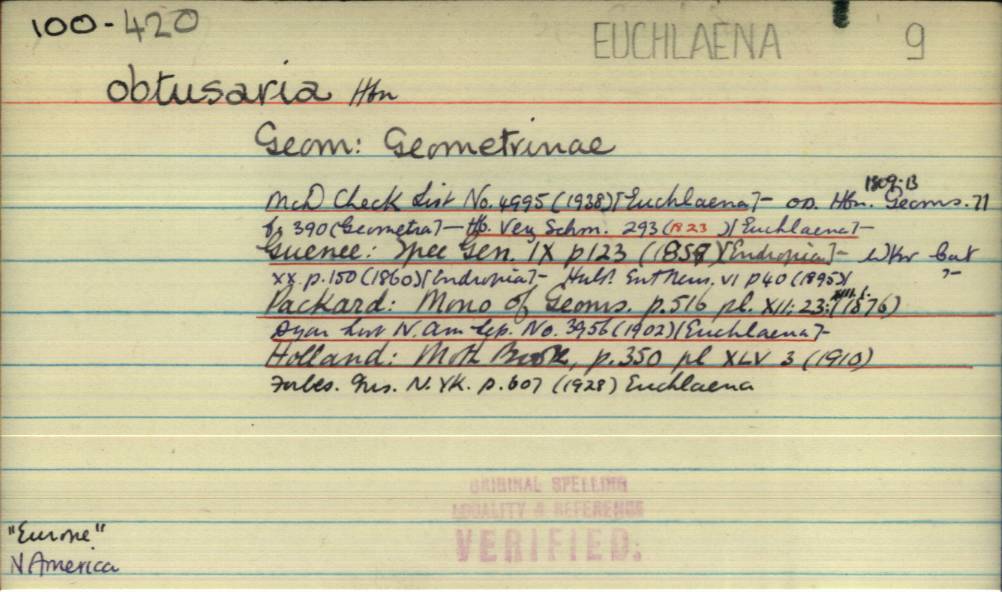 100-420 EUCHLAENA 9
obtusaria Hbn
Geom: Geometrinae
1809-13
McD Check List No. 4995 (1938) [Euchlaena]- op. Hbn. Geoms. 71
f. 390 (Geometra)- Hb. Verz Schm. 293 (1823) [Euchlaena]-
Guenee: Spec Gen. IX p123 (1857) [Endropia]- Wkr Cat
XX. p. 150 (1860) [Endropia]- Hulst Ent News. VI p40 (1895) ?-
Packard: Mono of Geoms. p.516 pl. XII: 23: (1876)
Dyar List N. Am Lep. No. 3956 (1902) [Euchlaena]-
Holland: Moth Book, p.350 pl XLV 3 (1910)
Forbes. Ins. N. YK. p. 607 (1928) Euchlaena
ORIGINAL SPELLING
LOCALITY & REFERENCE
VERIFIED.
"Europe"
N America